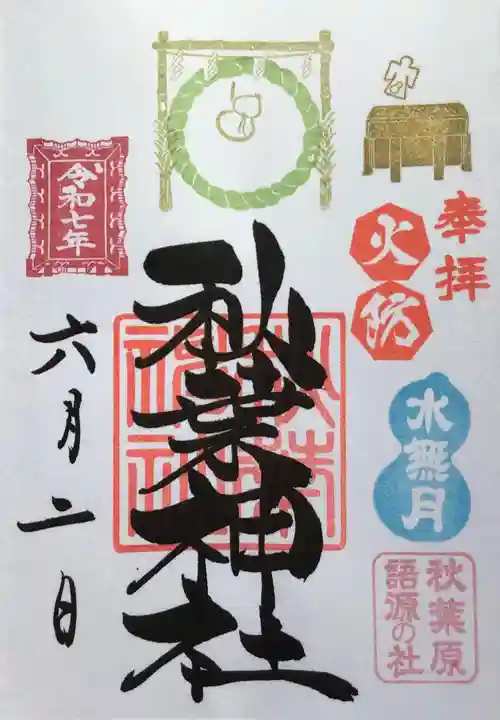 奉拝
火防
水無月
秋葉原
語源の社
秋葉神社
秋葉
神社
令和七年
六月二日